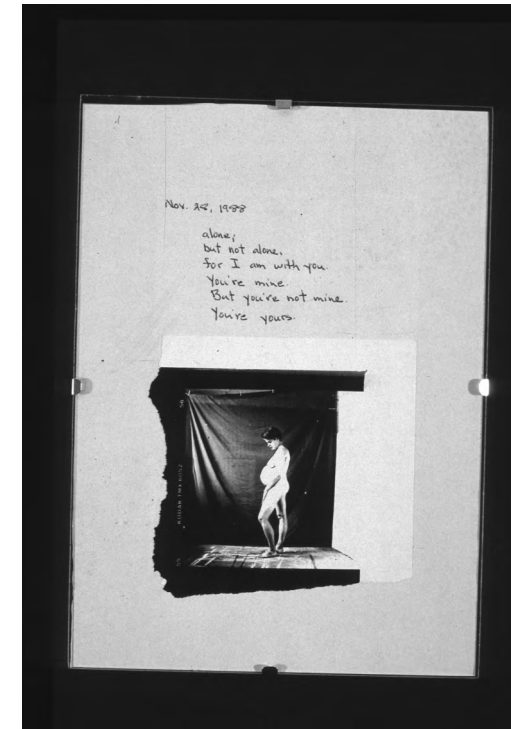 Nov. 28, 1988
alone;
but not alone,
for I am with you.
You're mine.
But you're not mine.
You're yours.
KODAK TMX 6052